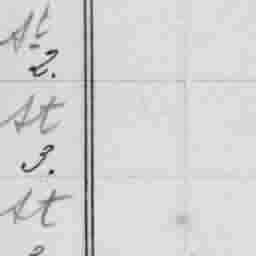 St
2.
St
3.
St